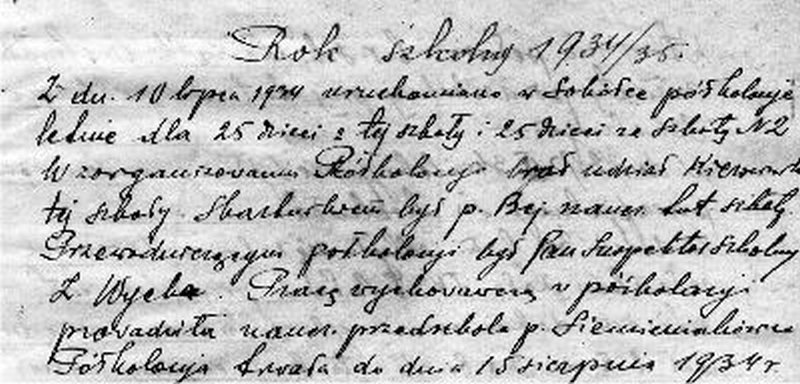 Rok szkolny 1934/35.
Z dn. 10 lipca 1934 uruchomiono w Sokółce półkolonje
letnie dla 25 dzieci z tej szkoły i 25 dzieci ze szkoły N2
W zorganizowaniu Półkolonji brał udział Kierownik
tej szkoły. Skarbnikiem był p. Bej. naucz. tut. szkoły.
Przewodniczącym półkolonji był Pan Inspektor szkolny
Z. Wycha. Pracę wychowawczą w półkolonji
prowadziła naucz. przedszkola p.
Półkolonja trwała do dnia 15 sierpnia 1934 r.